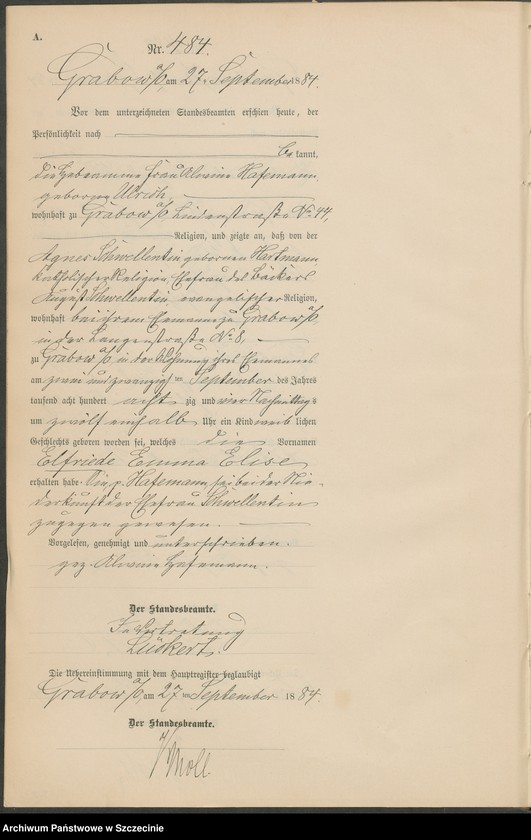 A.
Nr. 484.
Grabow a/O, am 27. September 1884.
Vor dem unterzeichneten Standesbeamten erschien heute, der
Persönlichkeit nach
be kannt,
die Hebeamme Frau Alwine Hafemann
geborene Ulrich,
wohnhaft zu Grabow a/O, Lindenstraße No 44,
Religion, und zeigte an, daß von der
Agnes Schwellentin geborenen Hartmann
katholischer Religion, Ehefrau des Bäckers
August Schwellentin evangelischer Religion,
wohnhaft bei ihrem Ehemanne zu Grabow a/O,
in der Langenstraße No 8,
zu Grabow a/O in der Wohnung ihres Ehemannes
am zwei und zwanzigsten September des Jahres
tausend acht hundert acht zig und vier Nachmittags
um zwölf einhalb Uhr ein Kind weib lichen
Geschlechts geboren worden sei, welches die Vornamen
Elfriede Emma Elise
erhalten habe. Die p. Hafemann sei bei der Nie-
derkunft der Ehefrau Schwellentin
zugegen gewesen.
Vorgelesen, genehmigt und unterschrieben.
gez. Alwine Hafemann.
Der Standesbeamte.
In Vertretung
Lückert.
Die Uebereinstimmung mit dem Hauptregister beglaubigt
Grabow a/O, am 27 ten September 1884.
Der Standesbeamte.
Moll
Archiwum Państwowe w Szczecinie